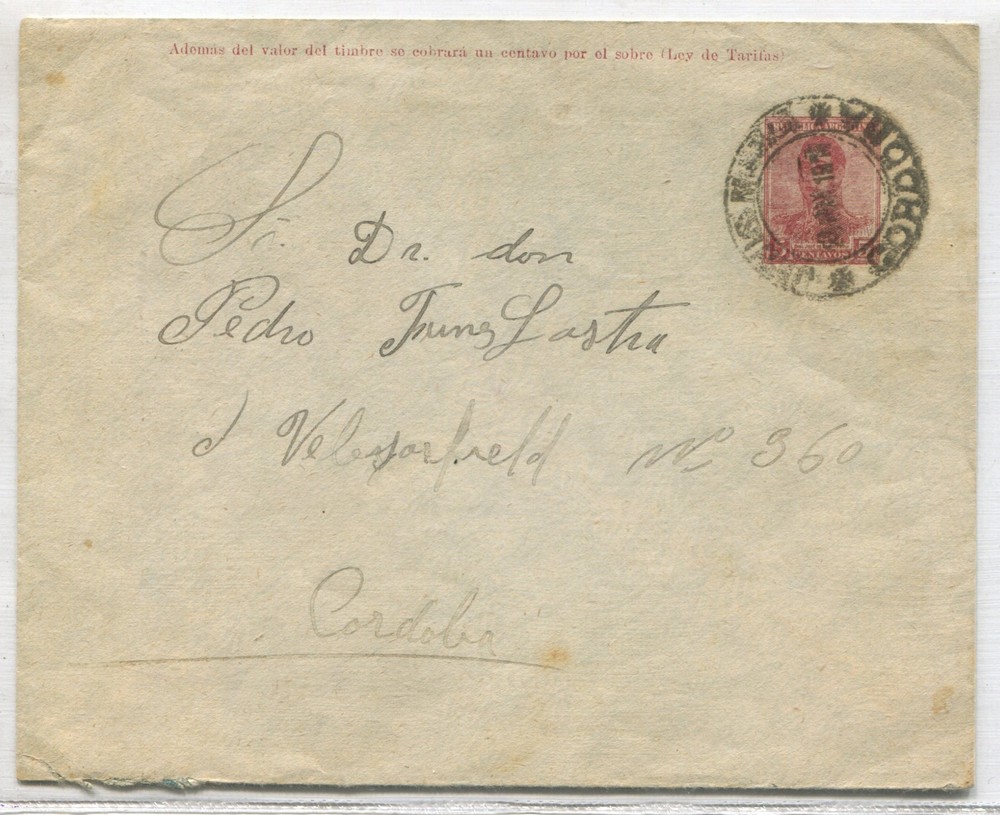 Además del valor del timbre se cobrará un centavo por el sobre (Ley de Tarifas)
CORDOBA
JESUS MARIA
5 CENTAVOS 5
Sr. Dr. don
Pedro Funes Lastra
Velezsarfield Nº 360
Cordoba